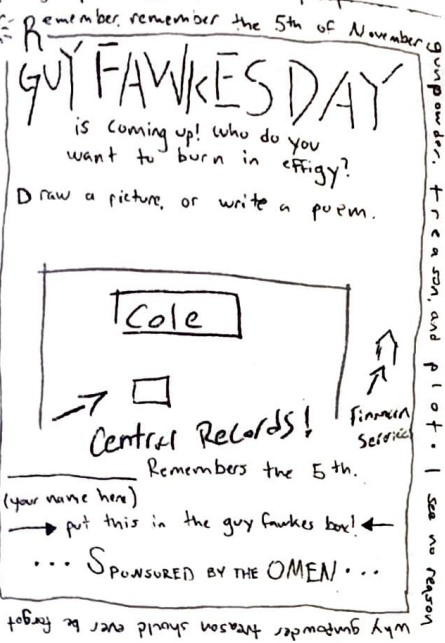 Remember, remember the 5th of November
gunpowder, treason, and plot. I see no reason
why gunpowder treason should ever be forgot
GUY FAWKES DAY
is coming up! who do you
want to burn in effigy?
Draw a picture, or write a poem.
Cole
Central Records!
Services
Remembers the 5th.
(your name here)
put this in the guy fawkes box!
... SPONSURED BY THE OMEN...